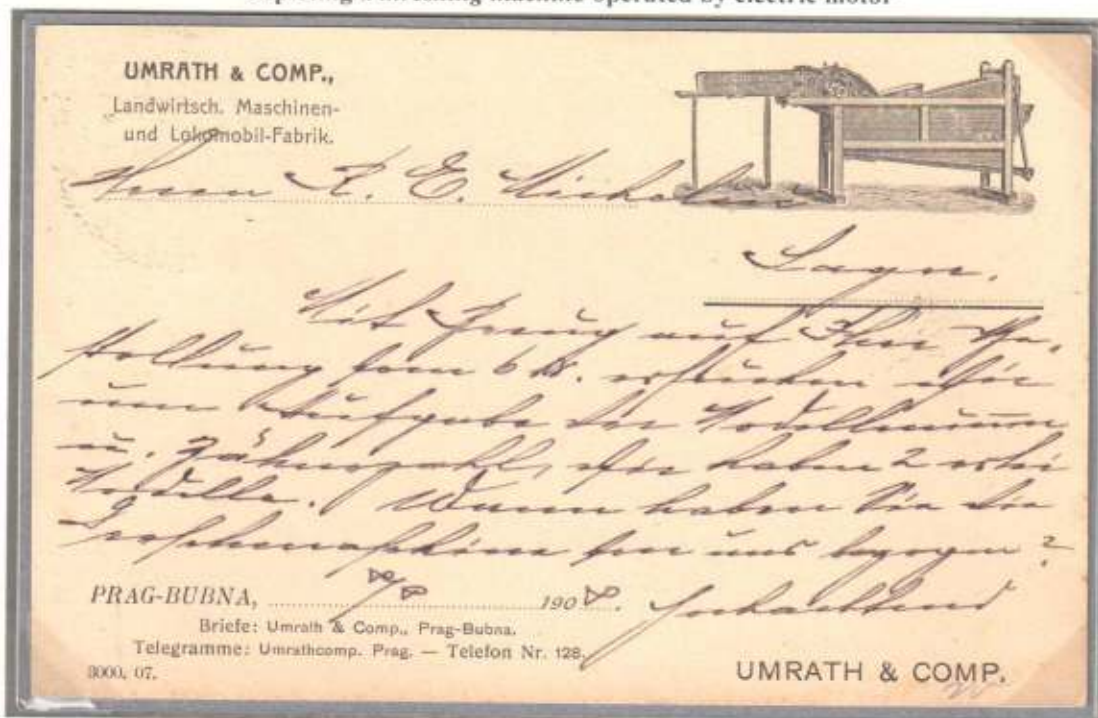 threshing machine operated by electric motor
UMRATH & COMP.,
Landwirtsch. Maschinen-
und Lokomobil-Fabrik.
Herrn E.
Mit Bezug auf Ihre Be-
stellung vom 6 ds. ersuchen wir
um Aufgabe der Modellnumm̄
u. Zähnezahl, wir haben 2 erlei
Modelle. Wann haben Sie die
Dreschmaschine von uns bezogen?
PRAG-BUBNA, 8/8 1908. Hochachtend
Briefe: Umrath & Comp., Prag-Bubna.
Telegramme: Umrathcomp. Prag. — Telefon Nr. 128.
3000. 07.
UMRATH & COMP.